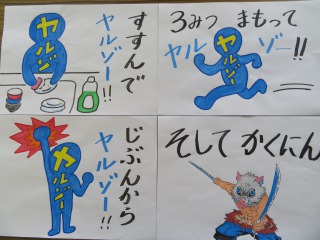 すすんで
ヤルゾー!!
ヤルゾー
3みつ まもって
ヤルゾー!!
ヤルゾー
じぶんから
ヤルゾー!!
ヤルゾー
そして かくにん